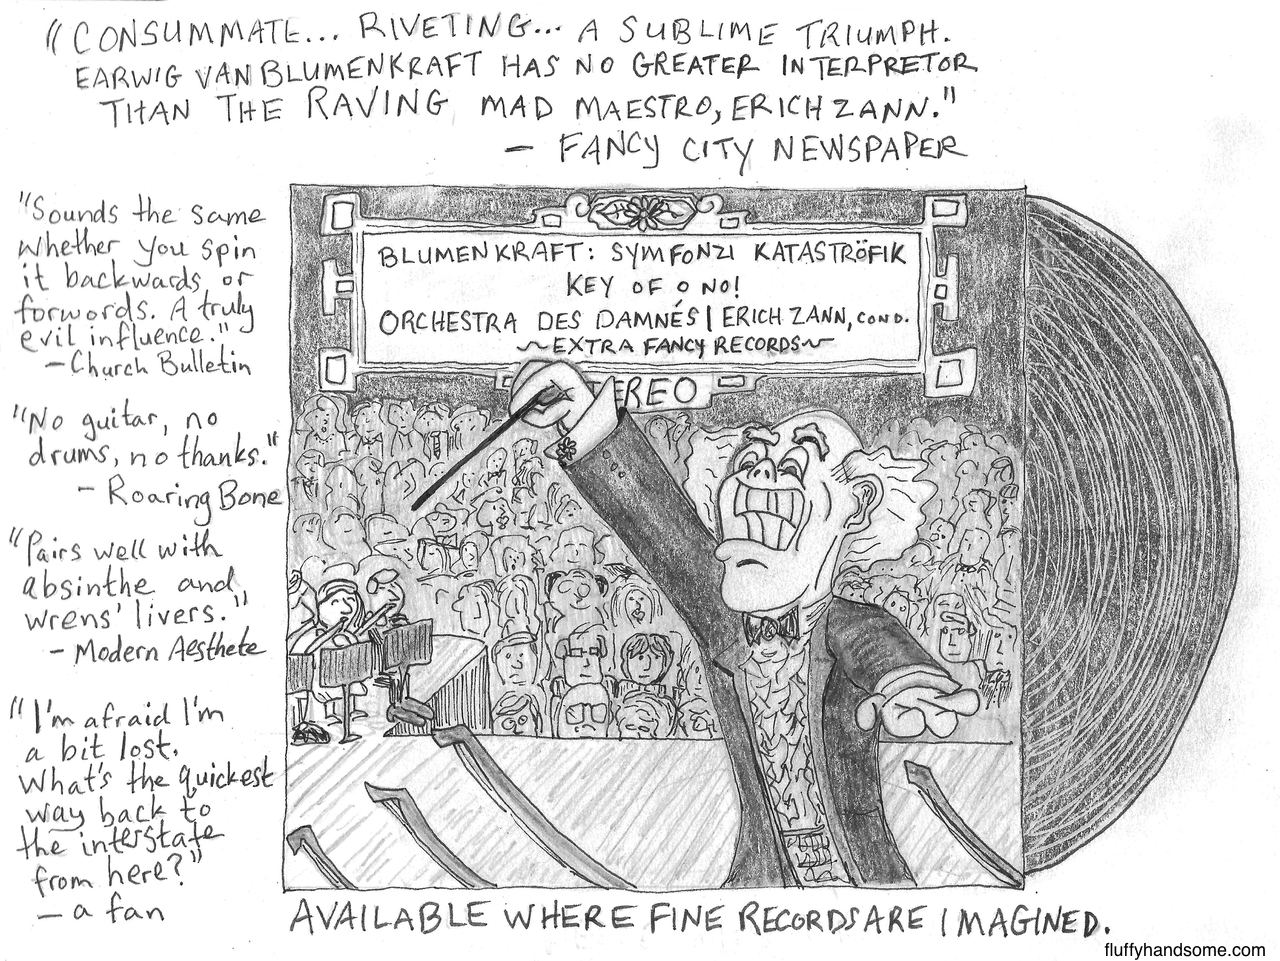 "CONSUMMATE... RIVETING... A SUBLIME TRIUMPH.
EARWIG VAN BLUMENKRAFT HAS NO GREATER INTERPRETOR
THAN THE RAVING MAD MAESTRO, ERICH ZANN."
- FANCY CITY NEWSPAPER
"Sounds the same
whether you spin
it backwards or
forwords. A truly
evil influence."
- Church Bulletin
"No guitar, no
drums, no thanks."
- Roaring Bone
"Pairs well with
absinthe and
wrens' livers."
- Modern Aesthete
"I'm afraid I'm
a bit lost.
What's the quickest
way back to
the interstate
from here?"
- a fan
BLUMENKRAFT: SYMFONZI KATASTRÖFIK
KEY OF O NO!
ORCHESTRA DES DAMNÉS | ERICH ZANN, COND.
~EXTRA FANCY RECORDS~
EREO
AVAILABLE WHERE FINE RECORDS ARE IMAGINED.
fluffyhandsome.com